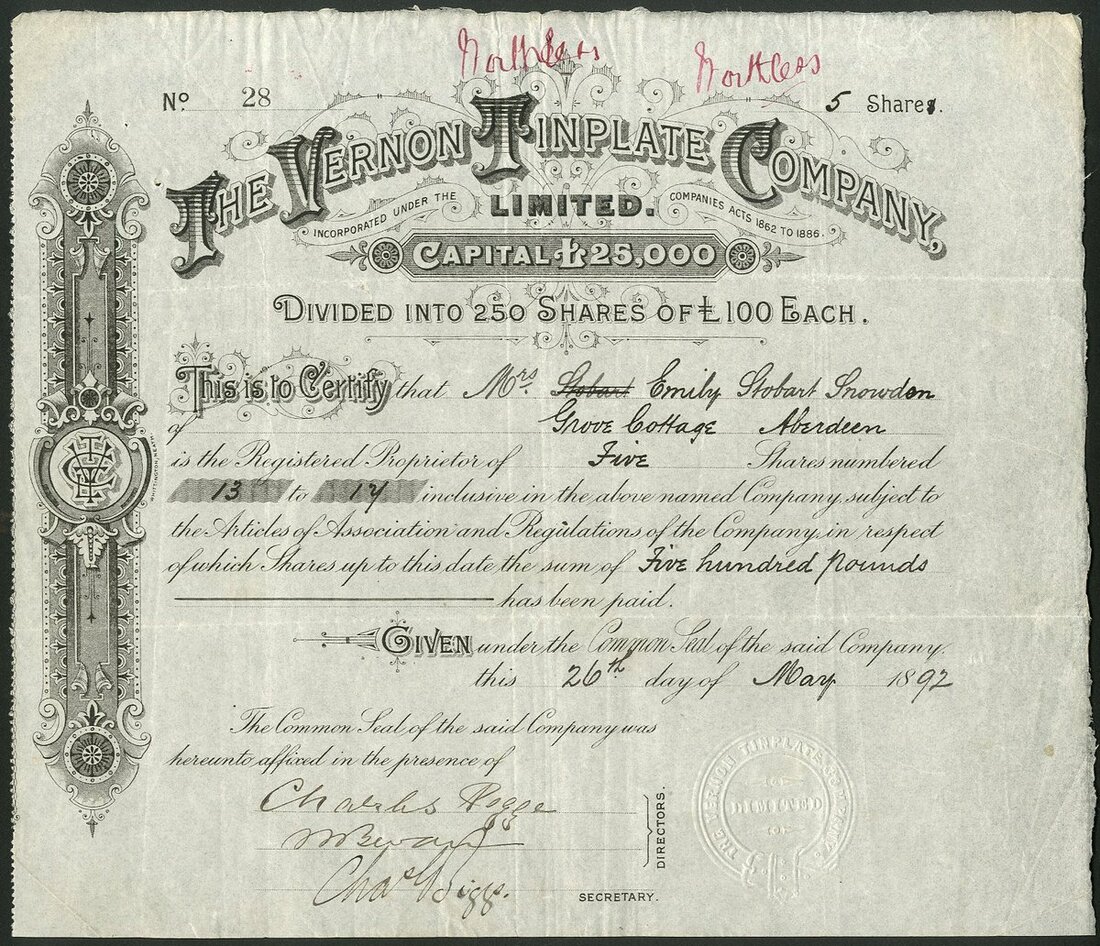 Worthless Worthless
No 28 5 Shares.
THE VERNON TINPLATE COMPANY,
INCORPORATED UNDER THE LIMITED. COMPANIES ACTS 1862 TO 1886.
CAPITAL £25,000
DIVIDED INTO 250 SHARES OF £100 EACH.
This is to Certify that Mrs Stobart Emily Stobart Snowden
of Grove Cottage Aberdeen
is the Registered Proprietor of Five Shares numbered
13 to 17 inclusive in the above named Company, subject to
the Articles of Association and Regulations of the Company, in respect
of which Shares up to this date the sum of Five hundred pounds
has been paid.
GIVEN under the Common Seal of the said Company,
this 26th day of May 1892
The Common Seal of the said Company was
hereunto affixed in the presence of
Charles
DIRECTORS.
Chas
SECRETARY.
THE VERNON TINPLATE COMPANY
LIMITED